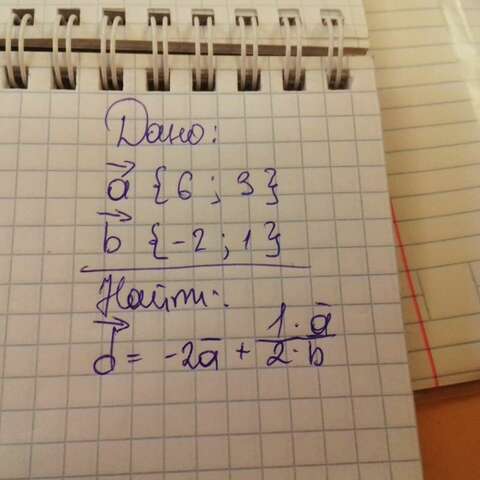 Дано:
a⃗ {6 ; 9}
b⃗ {-2 ; 1}
Найти:
d⃗ = -2a̅ + 1·a̅ / 2·b